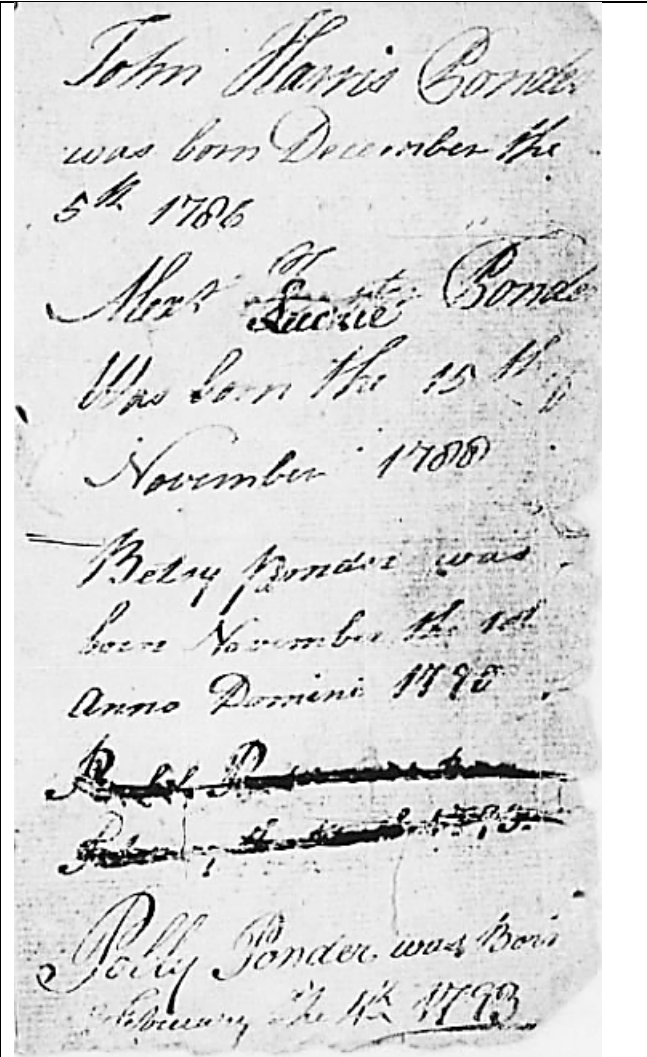 John Harris Ponder
was born December the
5th 1786
Alexr Luckie Ponder
Was born the 15th
November 1788
Betsy ponder was
born November the 1st
Anno Domini 1790
Polly Ponder was Born
February the 4th 1793